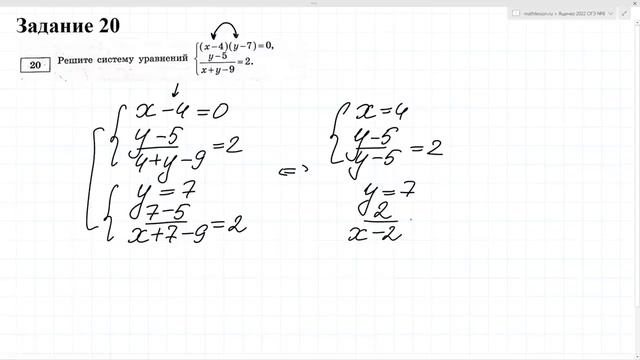 mathlesson.ru » Ященко 2022 ОГЭ №6
Задание 20
20 Решите систему уравнений { (x−4)(y−7)=0, (y−5)/(x+y−9)=2.
x−4=0
(y−5)/(4+y−9)=2
y=7
(7−5)/(x+7−9)=2
<=>
x=4
(y−5)/(y−5)=2
y=7
2/(x−2)